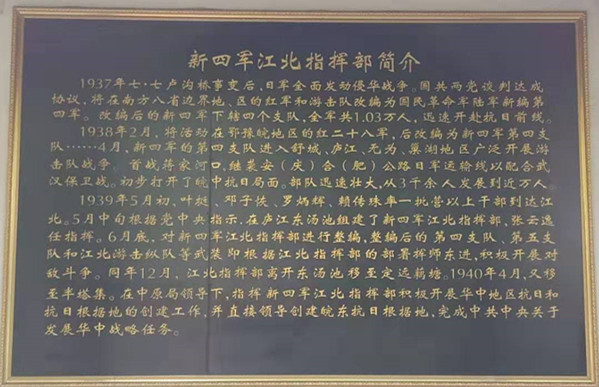 新四军江北指挥部简介
1937年七·七卢沟桥事变后,日军全面发动侵华战争。国共两党谈判达成
协议,将在南方八省边界地、区的红军和游击队改编为国民革命军陆军新编第
四军。改编后的新四军下辖四个支队,全军共1.03万人,迅速开赴抗日前线。
1938年2月,将活动在鄂豫皖地区的红二十八军,后改编为新四军第四支
队……4月,新四军的第四支队进入舒城、庐江、无为、巢湖地区广泛开展游
击队战争。首战蒋家河口,继袭安(庆)合(肥)公路日军运输线以配合武
汉保卫战。初步打开了皖中抗日局面。部队迅速壮大,从3千余人发展到近万人。
1939年5月初,叶挺、邓子恢、罗炳辉、赖传珠率一批营以上干部到达江
北。5月中旬根据党中央指示,在庐江东汤池组建了新四军江北指挥部,张云逸
任指挥。6月底,对新四军江北指挥部进行整编,整编后的第四支队、第五支
队和江北游击纵队等武装即根据江北指挥部的部署挥师东进,积极开展对
敌斗争。同年12月,江北指挥部离开东汤池移至定远藕塘。1940年4月,又移
至半塔集。在中原局领导下,指挥新四军江北指挥部积极开展华中地区抗日和
抗日根据地的创建工作,并直接领导创建皖东抗日根据地,完成中共中央关于
发展华中战略任务。